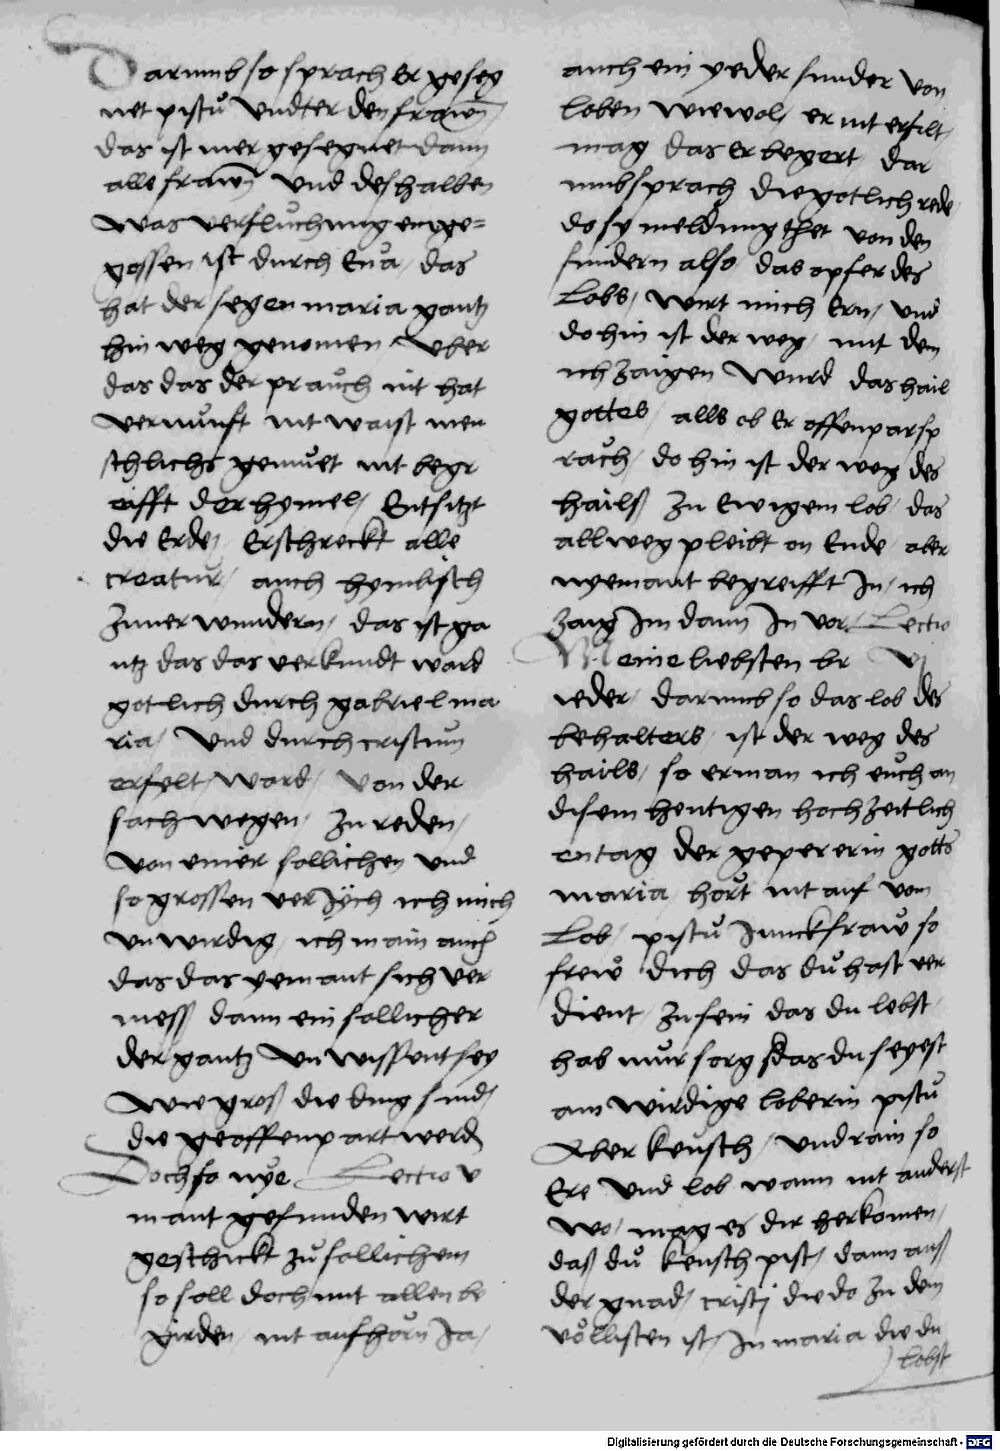 Darumb so sprach Er geseg
net pistu Undter den frawen /
das ist mer gesegnet dann
alle frawen Und deshalben
Was verfluchung einge=
gossen ist durch Eua / das
hat der segen maria gantz
hin weg genomen Uber
das das der prauch nit hat
vernunft nit waist men
schlichs gemuet nit begr
eifft der hymel / Entsitzt
die Erde / Erschreckt alle
creatur / auch hymlisch
Zuuer wundern / das ist ga
ntz das das verkundt ward
gotlich durch gabriel ma
ria / Und durch cristum
erfelt / ward / Von der
sach wegen / Zu reden /
Von einer sollichen Und
so grossen ver Jych ich mich
Un wirdig / ich main auch
das das yemant sich ver
mess dann ein sollicher
der gantz Un wissent sey
Wie gros die ding sind /
die geoffenpart werd
Doch so nye Lectio v
mant gefunden wirt
geschickt zu sollichem
so soll doch mit allen be
girden / nit aufhorn Ja /
auch ein yeder sunder von
loben wiewol / er nit erfilt /
mag das Er begert dar
umb sprach die gotlich rede
do sy meldung thet von den
sundern also das opfer des
Lobs / wirt mich Ern / Und
do hin ist der weg / mit dem
ich Zaigen Wurd das hail
gottes / alls ob Er offenpar sp
rach / do hin ist der weg des
hails Zu Ewigem lob / das
allweg pleibt on Ende / aber
nyemant begreifft Jn / ich
Zaig Jm dann Jn vor / Lectio
Meine liebsten br VI
ieder / darumb so das lob des
behalters / ist der weg des
hails / so erman ich euch an
disem heutigen hochzeitlich
en tag der gepererin gotts
maria / hort nit auf vom
Lob / pistu Junckfraw so
frew dich das du hast ver
dient Zu sein das du lebst /
hab nur sorg das du seyest
ain wirdige loberin pistu
Aber keusch / Und rain so
Ere Und lob wann nit anderst
wo / mag es dir herkomen /
das du keusch pist / dann aus
der gnad / cristi die do Zu dem
vollisten ist / Jn maria die du
lobst
Digitalisierung gefördert durch die Deutsche Forschungsgemeinschaft - DFG